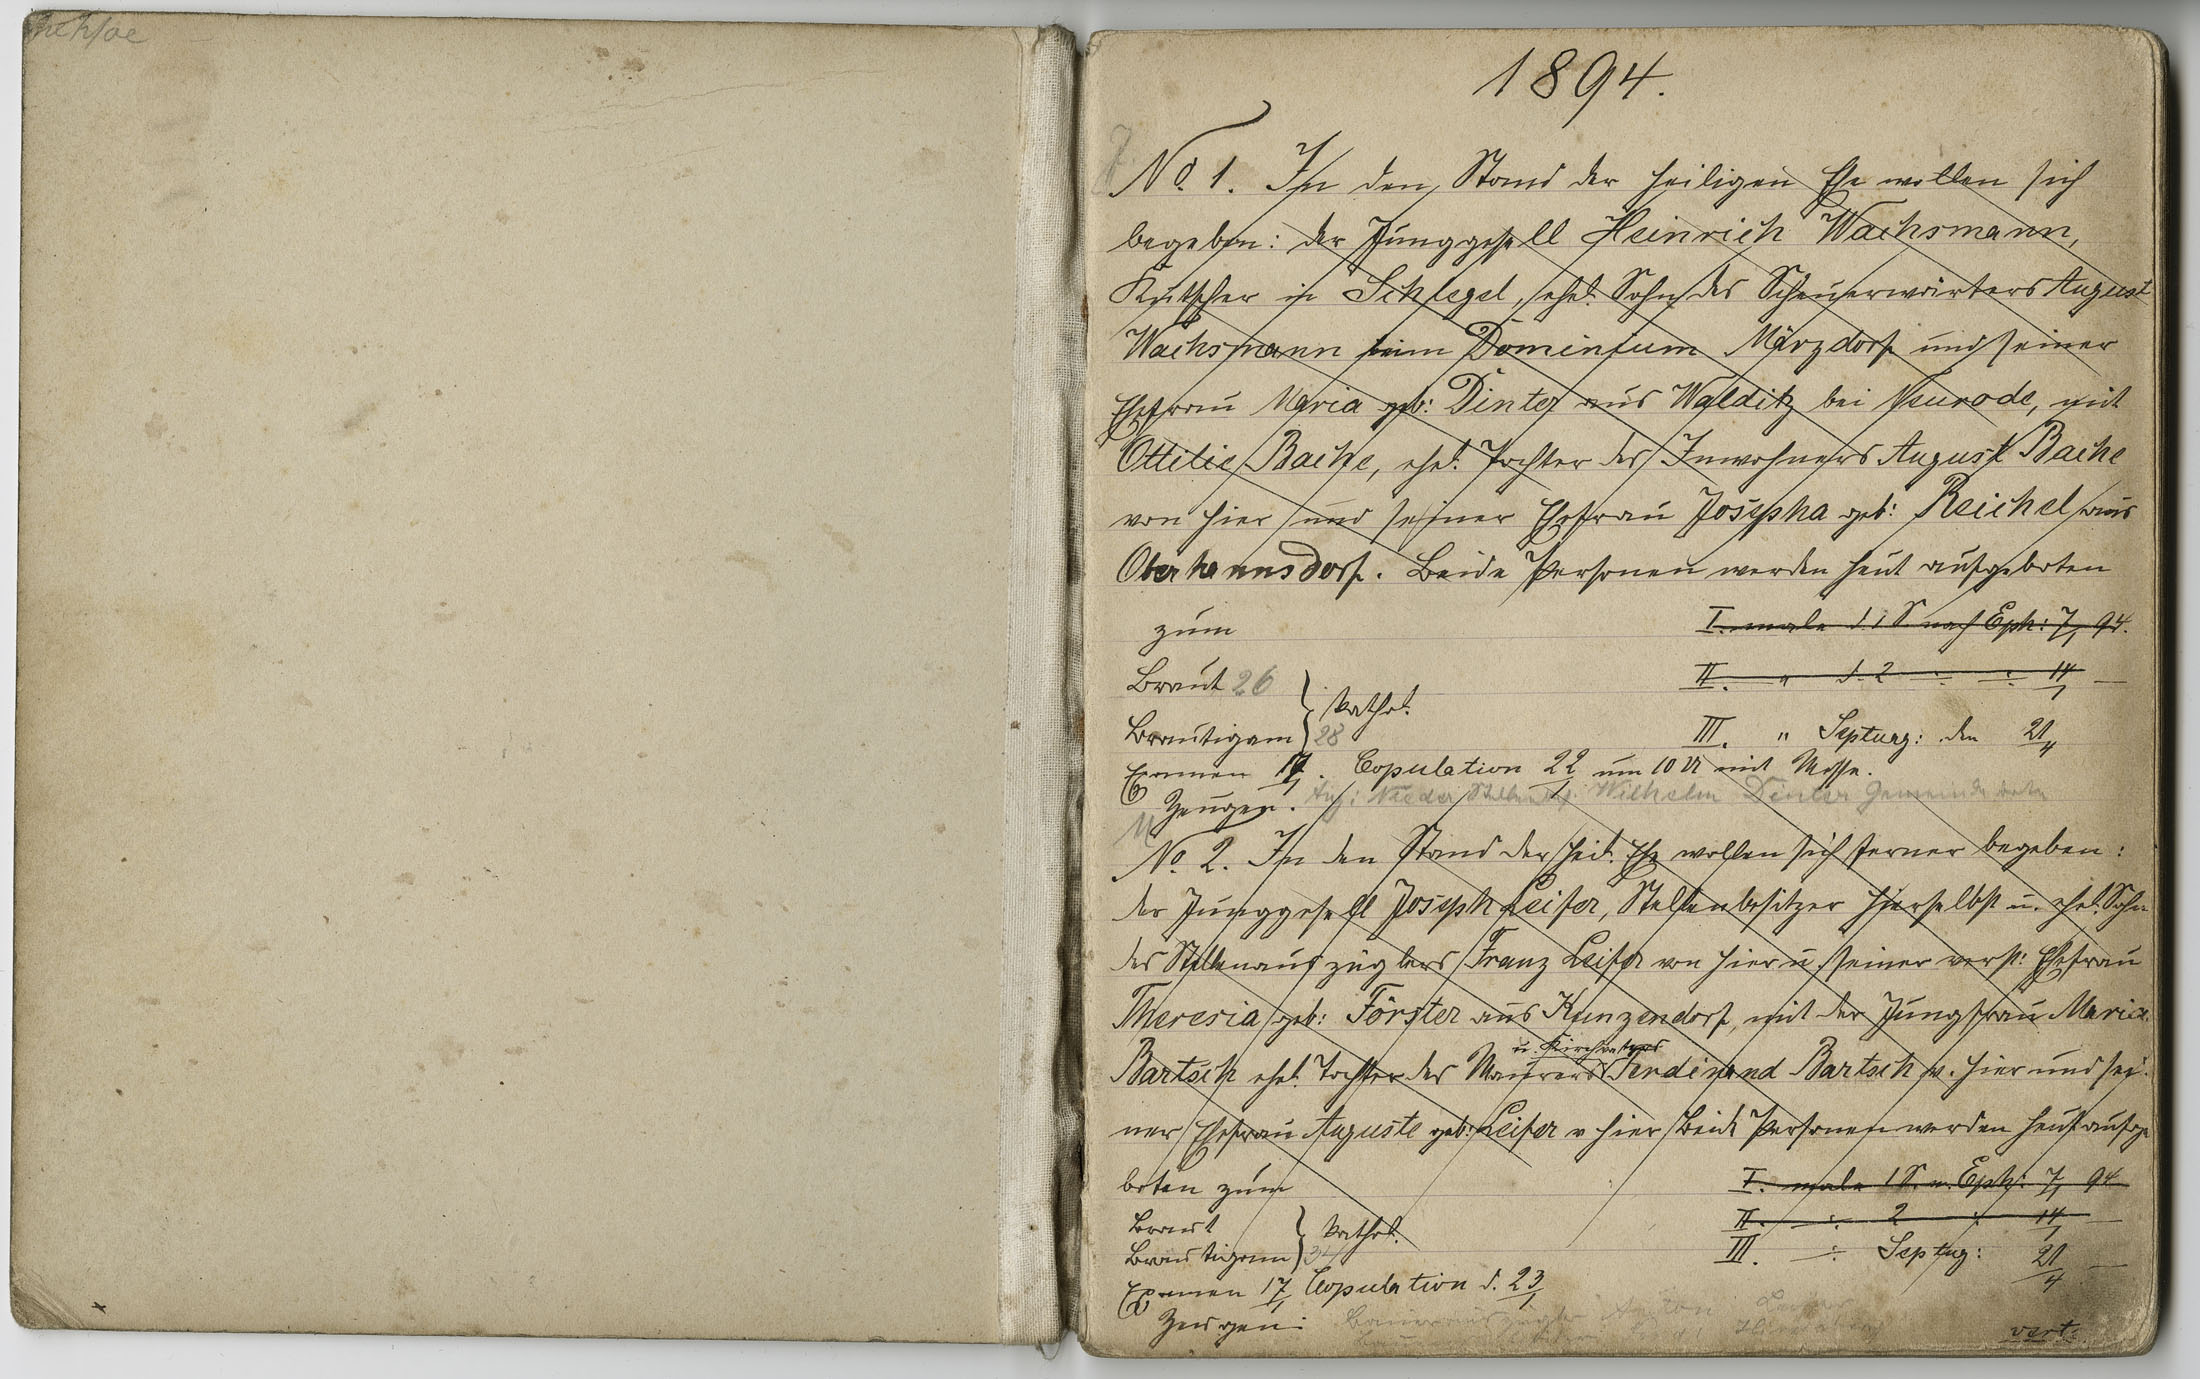 1894.
No. 1. In den Stand der heiligen Ehe wollen sich
begeben: der Junggesell Heinrich Wachsmann,
Kutscher in Schlegel, ehel. Sohn des Scheuerwärters August
Wachsmann beim Dominium Märzdorf und seiner
Ehefrau Maria geb: Dinter aus Walditz bei Neurode, mit
Ottilie Bache, ehel. Tochter des Inwohners August Bache
von hier und seiner Ehefrau Josepha geb: Reichel aus
Oberhannsdorf. Beide Personen werden heut aufgeboten
zum I. male d. 1 S. nach Eph: 7/1 94.
Braut 26 II. " d. 2 14/1
kathol.
Bräutigam 28 III. " Septuag: den 21/
Examen 17/1. Copulation 22/1 um 10 U mit Messe.
Zeugen. Wilhelm Dinter Gemeinde
No. 2. In den Stand der heil. Ehe wollen sich ferner begeben:
der Junggesell Joseph Leifer, Stellenbesitzer hierselbst u. ehel. Sohn
des Stellenauszüglers Franz Leifer von hier u. seiner verst: Ehefrau
Theresia geb: Förster aus Kunzendorf, mit der Jungfrau Maria
u. Kirchvaters
Bartsch ehel. Tochter des Maurers Ferdinand Bartsch v. hier und sei-
ner Ehefrau Auguste geb: Leifer v hier Beide Personen werden heut aufge
boten zum I. male 1 S. n. Eph: 7/1 94
Braut II. 2 14/1
kathol.
Bräutigam III. Septug: 21/
Examen 17/1 Copulation d. 23/1
Zeugen: Anton
vert.